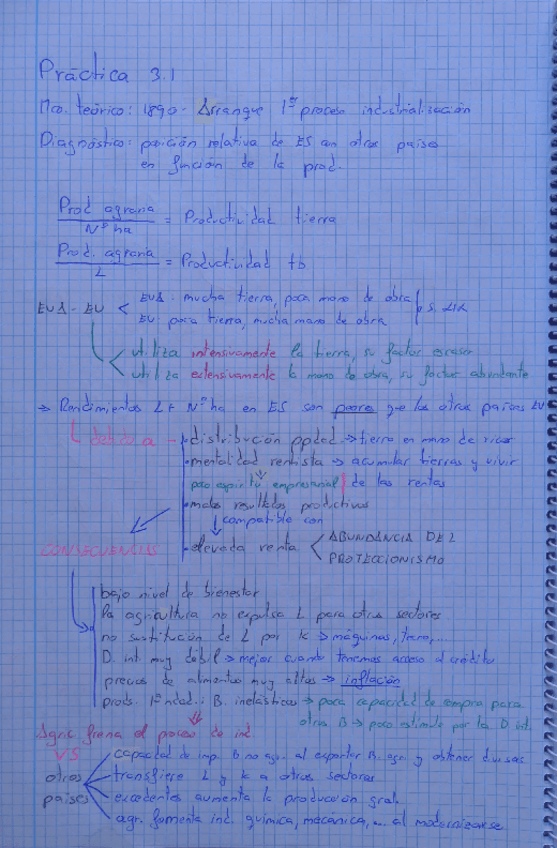 Práctica 3.1
Mco. teórico: 1890 - Arranque 1er proceso industrialización
Diagnóstico: posición relativa de ES con otros países
en función de la prod.
Prod agraria
Nº ha = Productividad tierra
Prod. agraria
L = Productividad tb
EUA - EU < EUA: mucha tierra, poca mano de obra
EU: poca tierra, mucha mano de obra
utiliza intensivamente la tierra, su factor escaso
utiliza extensivamente la mano de obra, su factor abundante
→ Rendimientos L + Nº ha en ES son peores que los otros países EU
debido a - distribución ppdad → tierra en mano de ricos
mentalidad rentista → acumular tierras y vivir
poco espíritu empresarial de las rentas
malos resultados productivos
compatible con
CONSECUENCIAS
elevada renta < ABUNDANCIA DE L
PROTECCIONISMO
bajo nivel de bienestar
la agricultura no expulsa L para otros sectores
no sustitución de L por k → máquinas, tecno,...
D. int muy débil → mejor cuanto tenemos acceso al crédito
precios de alimentos muy altos → inflación
prods. 1ª ndad.: B. inelásticos → poca capacidad de compra para
otros B → poco estímulo por la D. int.
Agric frena el proceso de ind.
VS
otros países
capacidad de imp. B no agr. al exportar B. agr. y obtener divisas
transfiere L y k a otros sectores
excedentes aumenta la producción gral.
agr. fomenta ind. química, mecánica,... al modernizarse